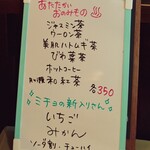 あたたかい
おのみもの♨
ジャスミン茶
ウーロン茶
美肌ハトムギ茶
びわ葉茶
ホットコーヒー
和紅茶
各350
ミチヨの新入りさん
いちご
みかん
ソーダ割・チューハイ